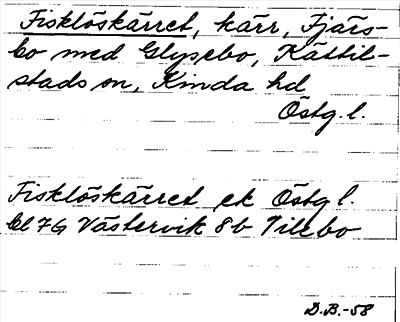 Fisklöskärret, kärr, Fjärs-
bo med Glysebo, Kättil-
stads sn, Kinda hd
Östg. l.
Fisklöskärret ek Östg l.
bl 7G Västervik 8b
D.B.-58